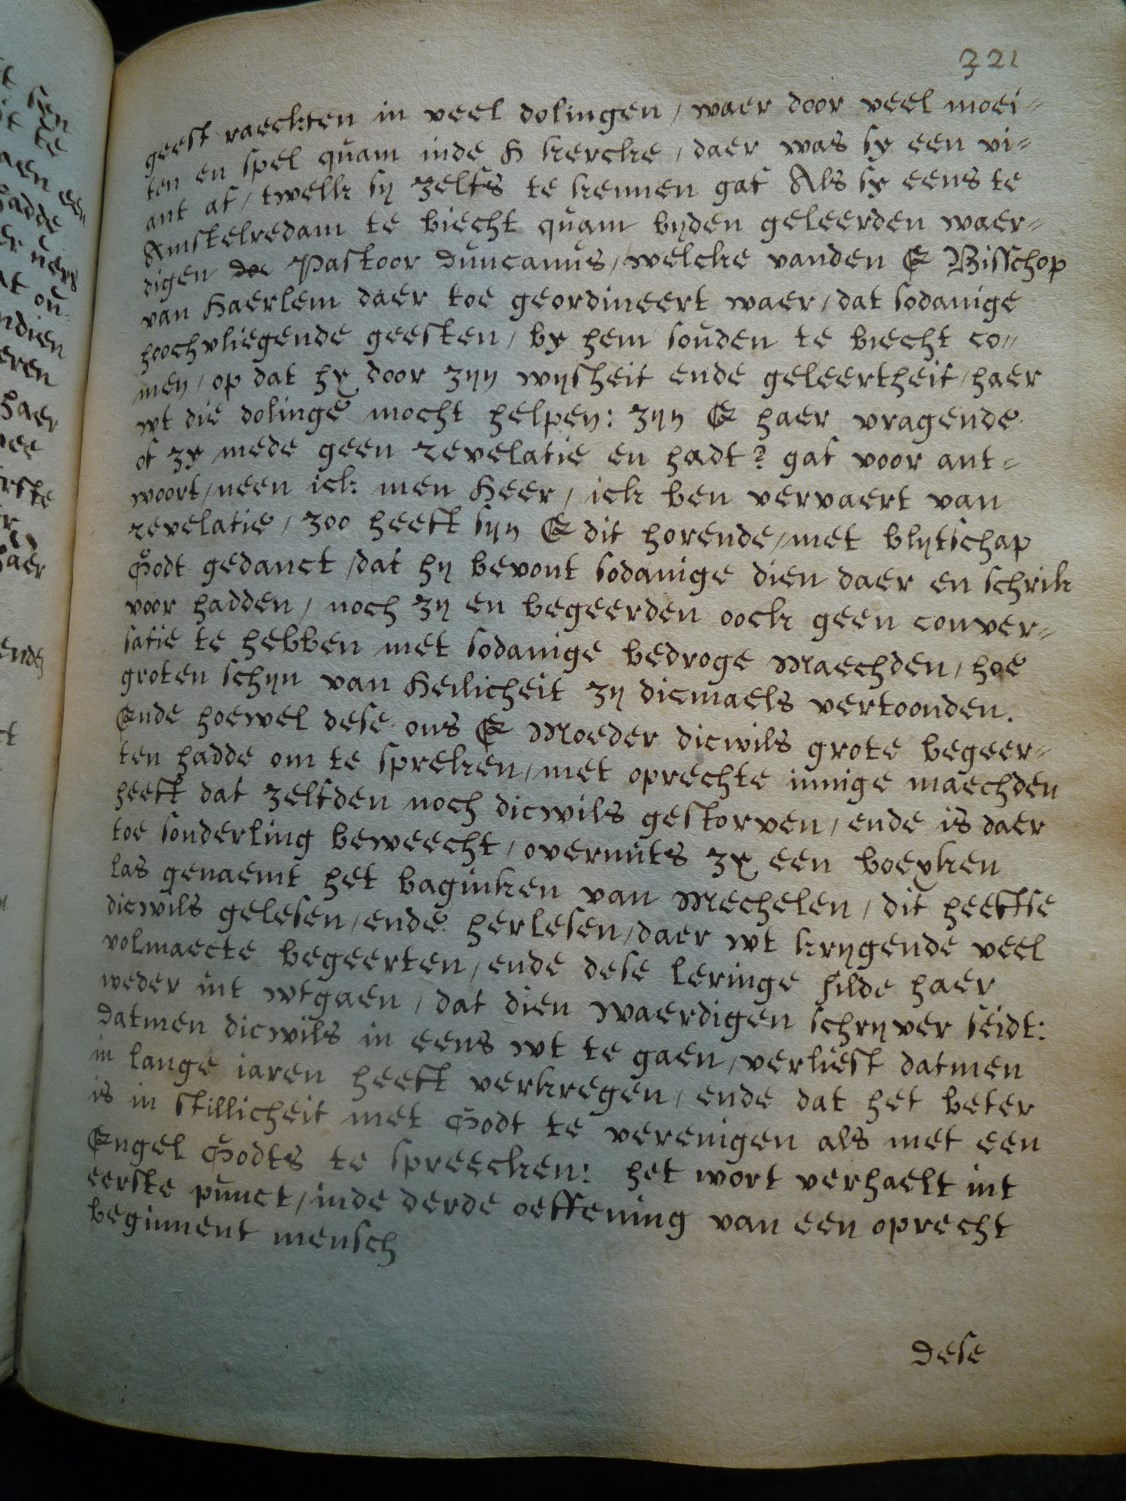 321
geest raeckten in veel dolingen / waer door veel moei-
ten en spel quam inde H kercke / daer was sy een vi-
ant af / twelk sij zelfs te kennen gaf Als sy eens te
Amstelredam te biecht quam bijden geleerden waer-
digen Pastoor Duncanus / welcke vanden E Bisschop
van Haerlem daer toe geordineert waer / dat sodanige
hoochvliegende geesten / by hem souden te biecht co-
men / op dat hy door zijn wijsheit ende geleertheit / haer
wt die dolinge mocht helpen: zijn E haer vragende
of zy mede geen revelatie en hadt? gaf voor ant-
woort / neen ick men Heer / ick ben vervaert van
revelatie / zoo heeft sijn E dit horende / met blijtschap
Godt gedanct / dat hij bevont sodanige dien daer en schrik
voor hadden / noch zij en begeerden oock geen conver-
satie te hebben met sodanige bedroge Maechden / hoe
groten schijn van Heilicheit zij diemaels vertoonden.
Ende hoewel dese ons E Moeder dicwils grote begeer-
ten hadde om te spreken / met oprechte innige maechden
heeft dat zelfden noch dicwils gestorven / ende is daer
toe sonderling beweecht / overmits zy een boexken
las genaemt het baginken van Mechelen / dit heeftse
dicwils gelesen / ende herlesen / daer wt krijgende veel
volmaecte begeerten / ende dese leringe hilde haer
weder int wtgaen / dat dien waerdigen schrijver seidt:
datmen dicwils in eens wt te gaen / verliest datmen
in lange iaren heeft verkregen / ende dat het beter
is in stillicheit met Godt te verenigen als met een
Engel Godts te spreecken: het wort verhaelt int
eerste punct / inde derde oeffening van een oprecht
beginnent mensch
dese